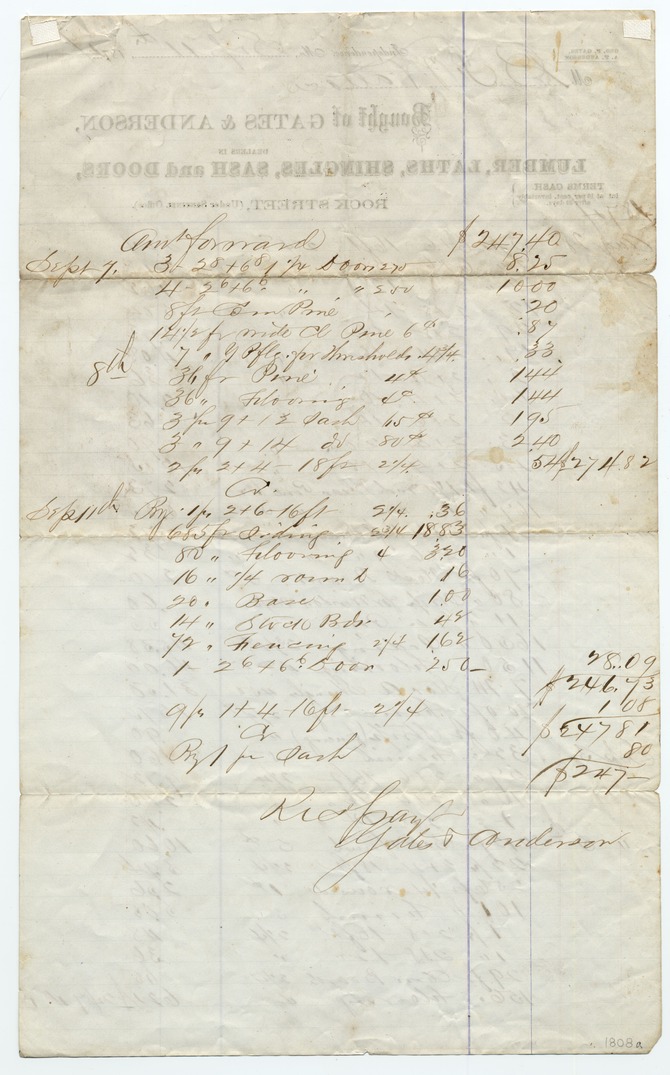 Amt forward $247.40
Sept 7. 3 - 2⁸ + 6⁸ 1 1/4 Doors 275 8.25
4 - 2⁶ + 6⁶ " " 250 10 00
8 ft Com Pine 20
14 1/2 ft wide Cl Pine 6 cts 87
7 " for thresholds 4 3/4 33
8th 36 ft Pine 4 cts 1 44
36 " Flooring 4 cts 1 44
3 pr 9 + 12 Sash 65 cts 1 95
3 " 9 + 14 do 80 cts 2 40
2 pc 2 + 4 - 18 ft 2 1/4 54 $274.82
Cr.
Sep 11th By 1 pc 2 + 6 - 16 ft 2 1/4 .36
685 ft Siding 2 3/4 18 83
80 " Flooring 4 3 20
16 " 1/4 round 16
20 " Base 1.00
14 " Stock Bds 42
72 " Fencing 2 1/4 1 62
1 - 2⁶ + 6⁶ Door 2 50 28.09
$246.73
9 pc 1 + 4 - 16 ft - 2 1/4 1 08
$247 81
Cr
By 1 pr Sash 80
$247 —
Recd Payt
Gates & Anderson
1808a
GEO. F. GATES.
Independence, Mo.
Bought of GATES & ANDERSON,
DEALERS IN
LUMBER, LATHS, SHINGLES, SASH and DOORS,
TERMS CASH
ROCK STREET,